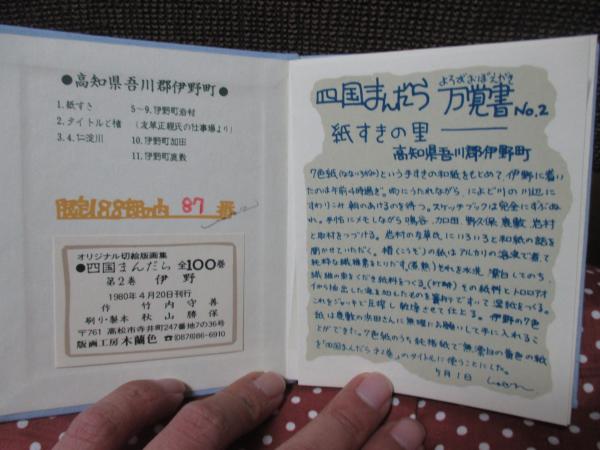 ●高知県吾川郡伊野町●
1.紙すき
5~9.伊野町岩村
2.タイトルと楮
(友草正雅氏の仕事場より)
3.4.仁淀川
10.伊野町加田
11.伊野町真敷
限定188部の内 87 番
オリジナル切絵版画集
●四国まんだら 全100巻
第2巻 伊野
1980年4月20日刊行
作 竹内守善
刷り・製本 秋山勝保
〒761 高松市寺井町247番地7の36号
版画工房木蘭色 ☎(087)86-6910
よろずおぼえがき
四国まんだら 万覚書 No.2
紙すきの里
高知県吾川郡伊野町
7色紙(なないろがみ)という手すきの和紙をもとめて伊野に着い
たのは午前4時過ぎ。雨にうたれながら、によど川の川辺に
すわりこみ朝のあけるのを待つ。スケッチブックは完全にずぶぬ
れ。手帖にメモしながら鳴谷、加田、野久保、真敷、岩村
と取材をつづける。岩村の友草氏にいろいろと和紙の話を
聞かせていただく。楮(こうぞ)の紙はアルカリの溶液で煮て
純粋な繊維素をとりだす(煮熟)それを水洗、漂白してのち、
繊維の束をくだき紙料をつくる(叩解)その紙料とトロロアオ
イから抽出した液を加えたものを簀町ですすって湿紙をつくる。
これをジャッキで圧搾し乾燥させて仕上る。伊野の7色
紙は真敷の宗田さんに無理にお願いして手に入れるこ
とができた。7色紙のうち純楮紙で無漂白の黄色の紙
を「四国まんだら 第2巻」のタイトルに使うことにした。
5月1日